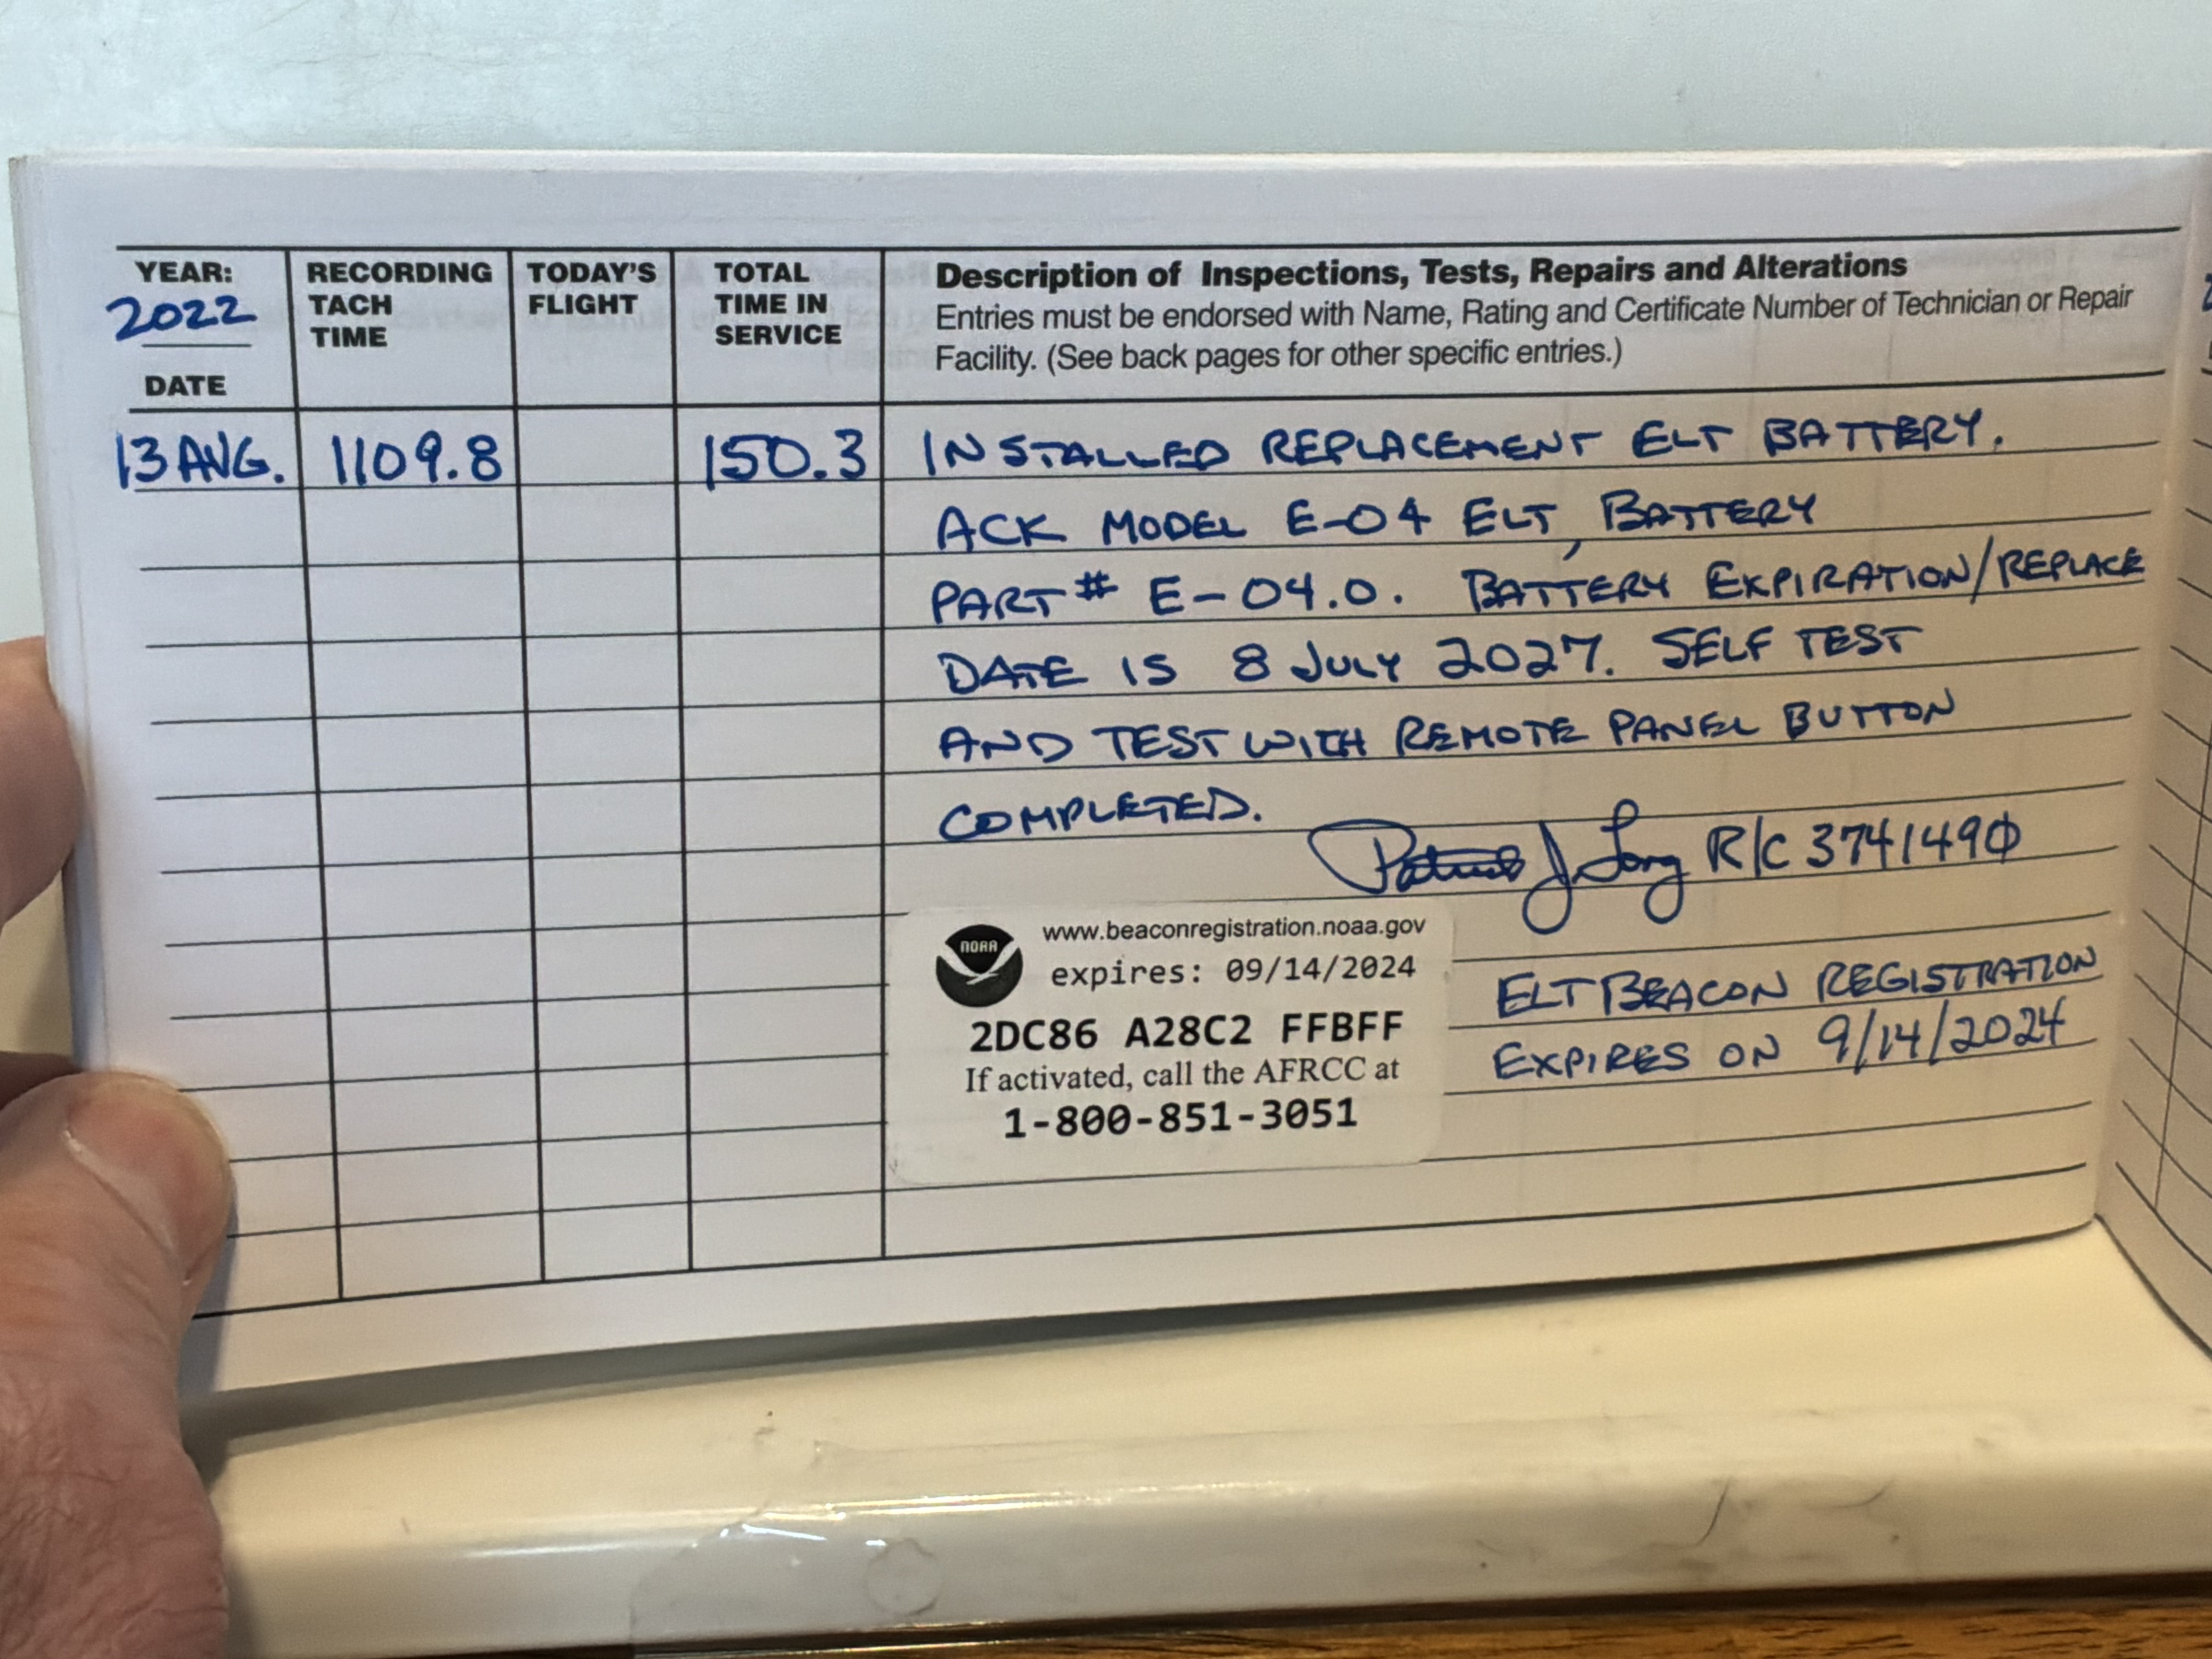 YEAR:
2022
DATE
RECORDING
TACH
TIME
TODAY'S
FLIGHT
TOTAL
TIME IN
SERVICE
Description of Inspections, Tests, Repairs and Alterations
Entries must be endorsed with Name, Rating and Certificate Number of Technician or Repair
Facility. (See back pages for other specific entries.)
13 AUG. 1109.8 150.3 INSTALLED REPLACEMENT ELT BATTERY.
ACK MODEL E-04 ELT, BATTERY
PART# E-04.0. BATTERY EXPIRATION/REPLACE
DATE IS 8 JULY 2027. SELF TEST
AND TEST WITH REMOTE PANEL BUTTON
COMPLETED.
Patrick J Long R/C 3741490
NOAA
www.beaconregistration.noaa.gov
expires: 09/14/2024
2DC86 A28C2 FFBFF
If activated, call the AFRCC at
1-800-851-3051
ELT BEACON REGISTRATION
EXPIRES ON 9/14/2024